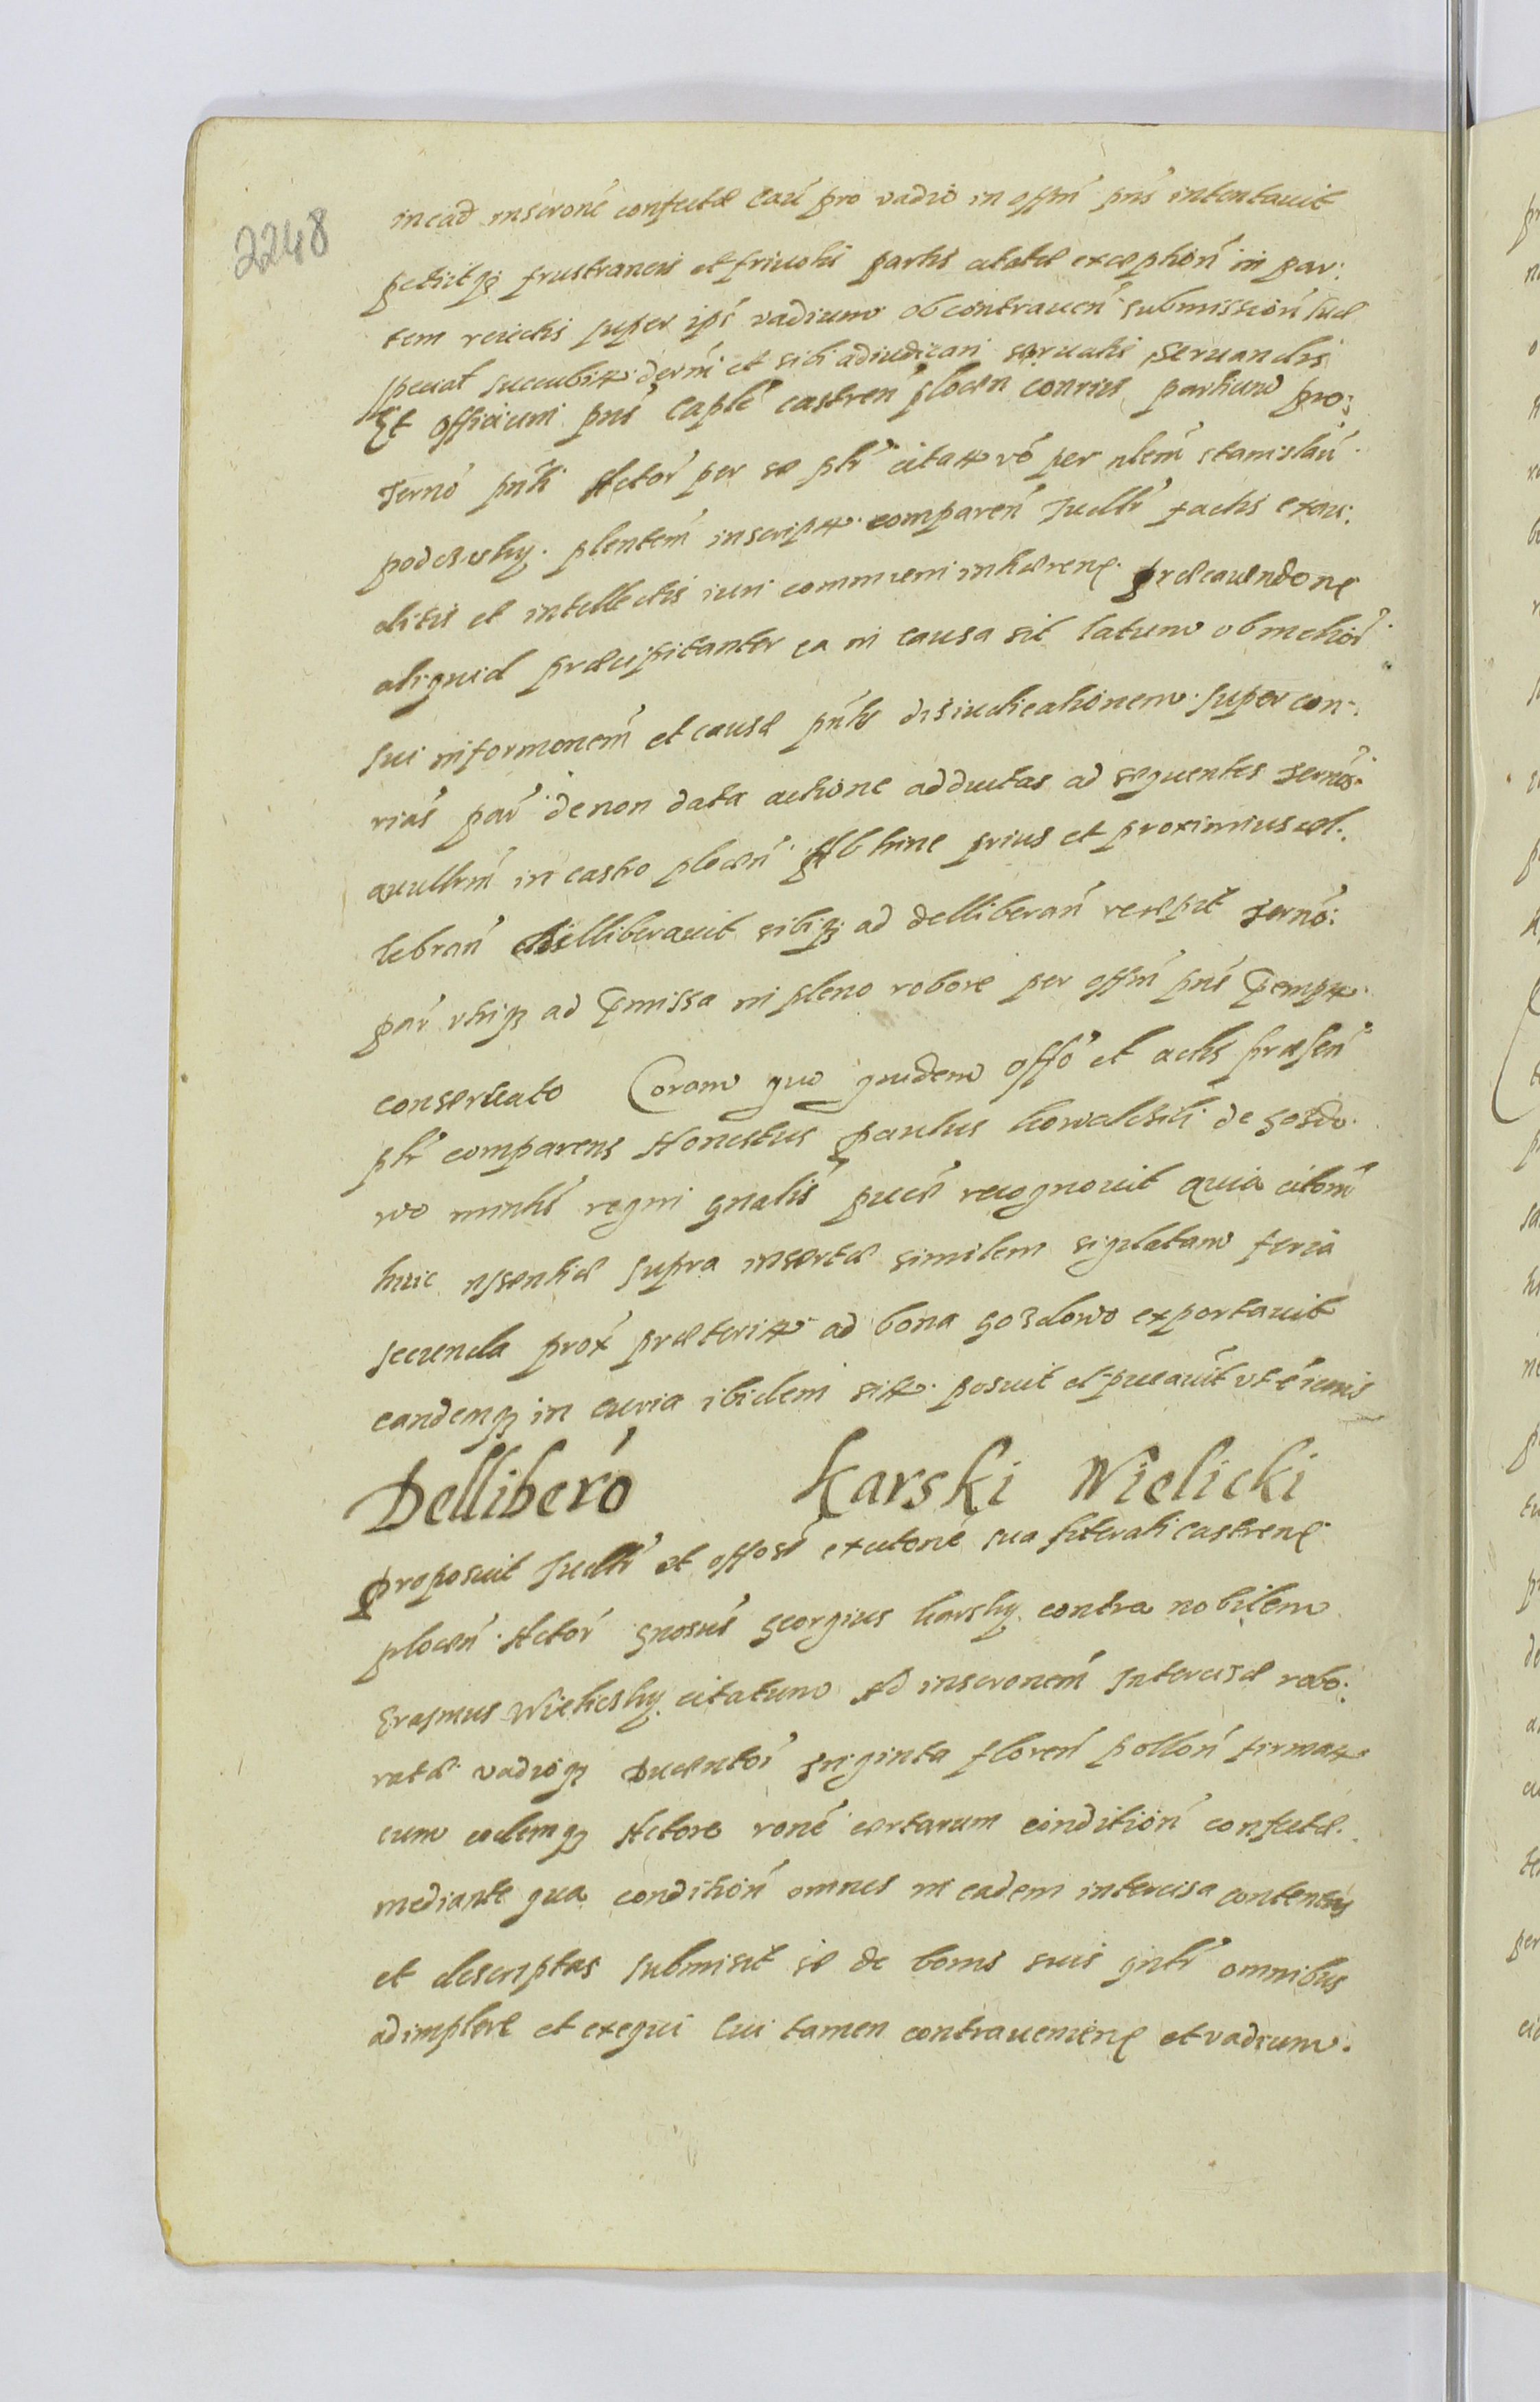 2248
in ead inscrone confectæ Cau pro vadio in offm pns intentavit
petiitqȝ frustraneis et friuolis partis citatæ exceptioni in par:
tem reiectis super ips vadium ob contrauen submissioni suæ
succubit: derni et sibi adiudicari seruatis seruandis
Et Officium pns Caplē castren plocen conrius partium pro:
Termō pnti Actor per se plr citat vō per nlem stanislaū
podczesky. plentem inscript. comparen Judlr factis exau:
ditis et intellectis iuri communi inhæren præcauendo ne
aliquid præcipitanter ea in causa sit latum ob melior
sui informonem et causæ pnts disiudicationem super con:
rias par de non data actione adductas ad sequentes termos
quællarm in castro plocen Ab hinc prius et proximius cel.
lebran delliberauit sibiqȝ ad delliberan recepit termō:
par vtriqȝ ad pmissa in pleno robore per offm pns
conseruato Coram quo quidem offō et actis præsen
plr comparens Honestus paulus kowalski de gozdo
wo mintr regni gnalis pucē recognouit quia citonem
huic supra insertæ similem sigillatam feria
secunda prox præterit ad bona gozdowo exportauit
eandemqȝ in curia ibidem sit. posuit et pucauit vt ē iuris
Delliberō Karski Wielicki
proposuit Judlr et offose citone sua literali castren
plocen Actor gnosus georgius karsky contra nobilem
Erasmus Wielicsky citatum Ad inscronem Intercisæ robo:
ratæ vadioqȝ Ducentor triginta floren pollon firmat
cum eodemqȝ Actore rone certarum condition confectæ.
mediante qua condition omnes in eadem intercisa contentas
et descriptas submisit se de bonis suis gntr omnibus
adimplere et exequi Cui tamen contraueniens et vadium.